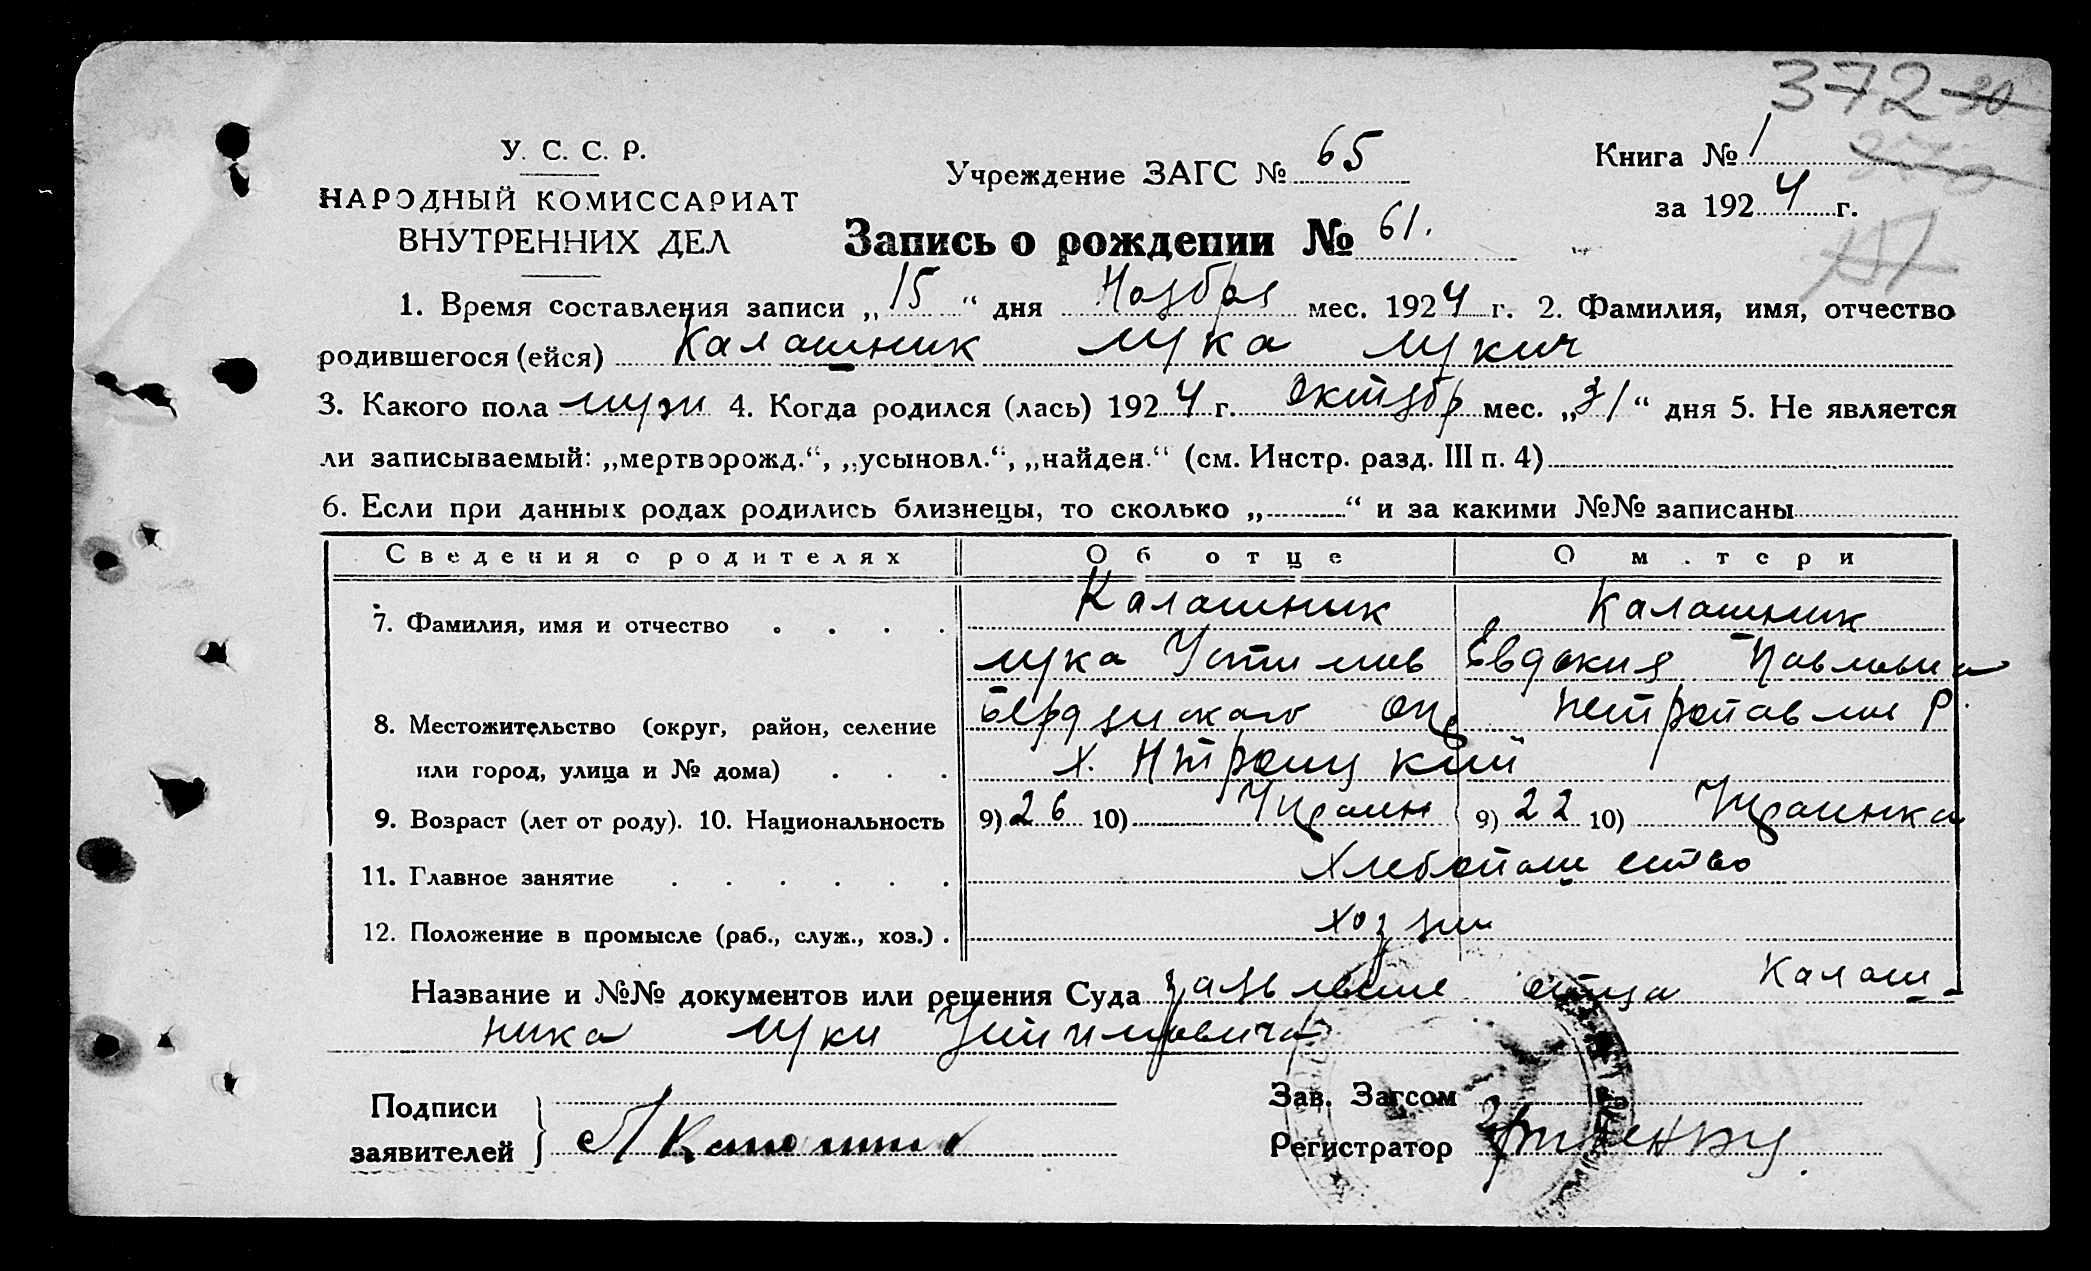 372 30
У. С. С. Р.
НАРОДНЫЙ КОМИССАРИАТ
ВНУТРЕННИХ ДЕЛ
Учреждение ЗАГС № 65
Книга № 1
за 1924 г.
Запись о рождении № 61.
1. Время составления записи „15“ дня Ноября мес. 1924 г. 2. Фамилия, имя, отчество
родившегося (ейся) Калашник Лука Лукич
3. Какого пола муж 4. Когда родился (лась) 1924 г. Октябр мес. „31“ дня 5. Не является
ли записываемый: „мертворожд.“, „усыновл.“, „найден.“ (см. Инстр. разд. III п. 4)
6. Если при данных родах родились близнецы, то сколько „ “ и за какими №№ записаны
Сведения о родителях Об отце О м.тери
7. Фамилия, имя и отчество Калашник Калашник
Лука Устимов Евдокия Павловна
8. Местожительство (округ, район, селение Бердянского окр Петропавлов р.
или город, улица и № дома) х.
9. Возраст (лет от роду). 10. Национальность 9) 26 10) Украин 9) 22 10) Украинка
11. Главное занятие Хлебопашество
12. Положение в промысле (раб., служ., хоз.) хозяин
Название и №№ документов или решения Суда заявление отца Калаш-
ника Луки Устимовича
Подписи
заявителей Л Калашник
Зав. Загсом
Регистратор